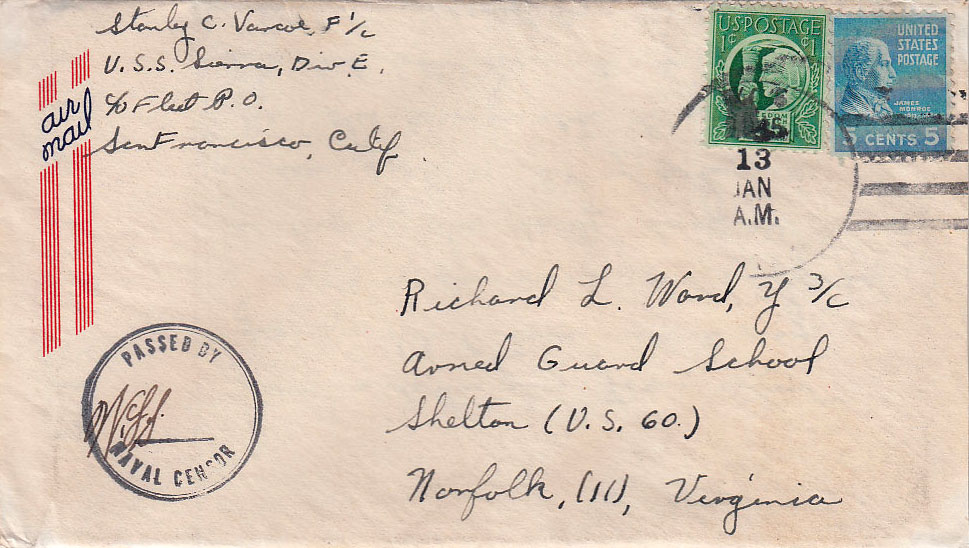 Stanley C. Varcoe, F 1/c
U.S.S. Sierra, Div E.
c/o Fleet P.O.
San Francisco, Calif
air
mail
U·S·POSTAGE
1¢ ¢1
UNITED
STATES
POSTAGE
JAMES
MONROE
5 CENTS 5
13
JAN
A.M.
Richard L. Ward, Y 3/c
Armed Guard School
Shelton (U.S. 60.)
Norfolk, (11), Virginia
PASSED BY
NAVAL CENSOR